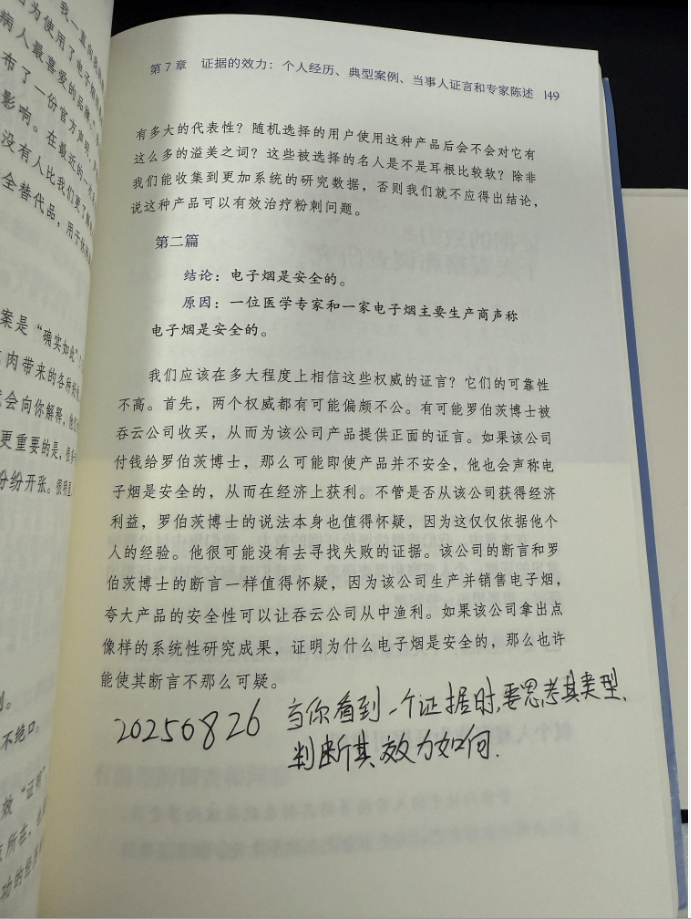 第7章 证据的效力：个人经历、典型案例、当事人证言和专家陈述 149
有多大的代表性？随机选择的用户使用这种产品后会不会对它有
这么多的溢美之词？这些被选择的名人是不是耳根比较软？除非
我们能收集到更加系统的研究数据，否则我们就不应得出结论，
说这种产品可以有效治疗粉刺问题。
第二篇
结论：电子烟是安全的。
原因：一位医学专家和一家电子烟主要生产商声称
电子烟是安全的。
我们应该在多大程度上相信这些权威的证言？它们的可靠性
不高。首先，两个权威都有可能偏颇不公。有可能罗伯茨博士被
吞云公司收买，从而为该公司产品提供正面的证言。如果该公司
付钱给罗伯茨博士，那么可能即使产品并不安全，他也会声称电
子烟是安全的，从而在经济上获利。不管是否从该公司获得经济
利益，罗伯茨博士的说法本身也值得怀疑，因为这仅仅依据他个
人的经验。他很可能没有去寻找失败的证据。该公司的断言和罗
伯茨博士的断言一样值得怀疑，因为该公司生产并销售电子烟，
夸大产品的安全性可以让吞云公司从中渔利。如果该公司拿出点
像样的系统性研究成果，证明为什么电子烟是安全的，那么也许
能使其断言不那么可疑。
20250826 当你看到一个证据时，要思考其类型，
判断其效力如何.
我一直向
因为使用了电子烟
病人最喜爱的品牌
布了一份官方声明
影响。在最近的一次
没有人比我们更了解
全替代品，用于
案是“确实如此”
肉带来的各种
就会向你解释，
更重要的是，很多
纷纷开张。很明显
不绝口，
效“证明
点所在，
功的